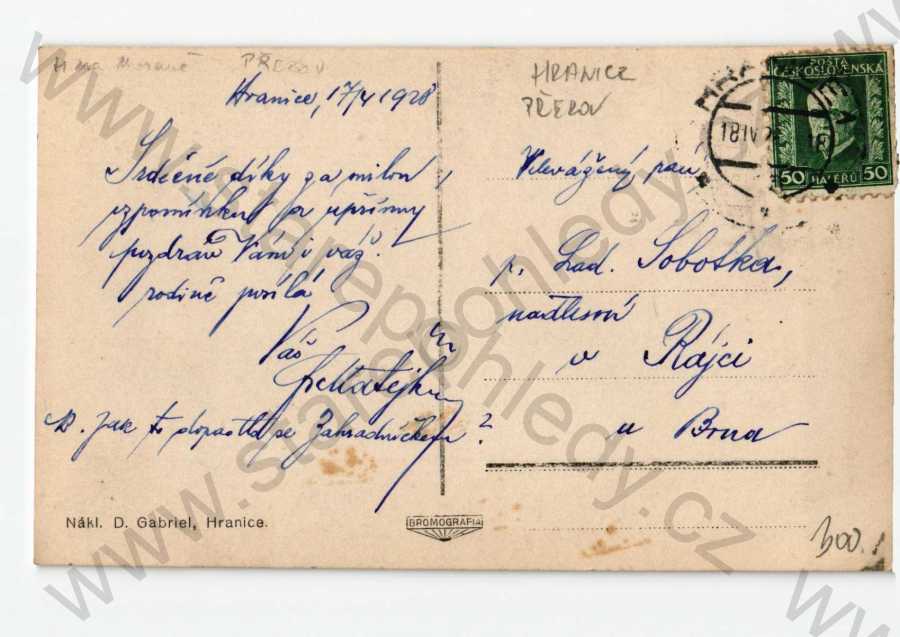 Hranice, 17/4 1928
Srdečné díky za milou
vzpomínku a upřímný
pozdrav Vám i váž.
rodině posílá
Váš
B. jak to dopadlo se Zahradníčkem?
Nákl. D. Gabriel, Hranice.
BROMOGRAFIA
PŘEROV
HRANICE
PŘEROV
POŠTA
ČESKOSLOVENSKÁ
50 HALÉŘŮ 50
18 IV
Velevážený pan,
p. Lad. Sobotka,
nadlesní
v Rájci
u Brna
300.
www.starepohledy.cz